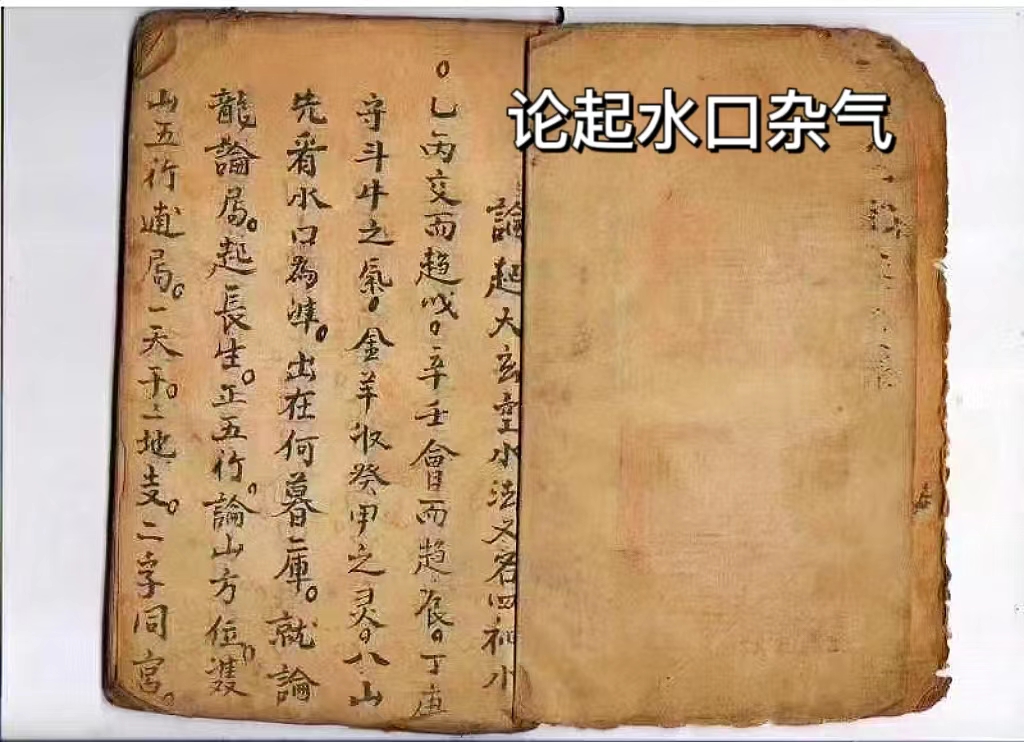 论起水口杂气
論起大玄空水法又名四神水
。乙丙交而趋戌。辛壬會而趋辰。丁庚
守斗牛之氣。金羊收癸甲之灵。八山
先看水口為準。出在何暮庫。就論
龍論局。起長生。正五行。論山方位。雙
山五行遁局。一天干。二地支。二字同宮。